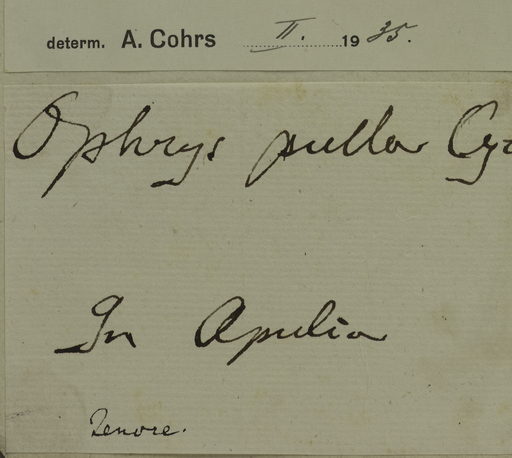 determ. A. Cohrs II. 1935.
Ophrys pulla Cy
In Apulia
Tenore.